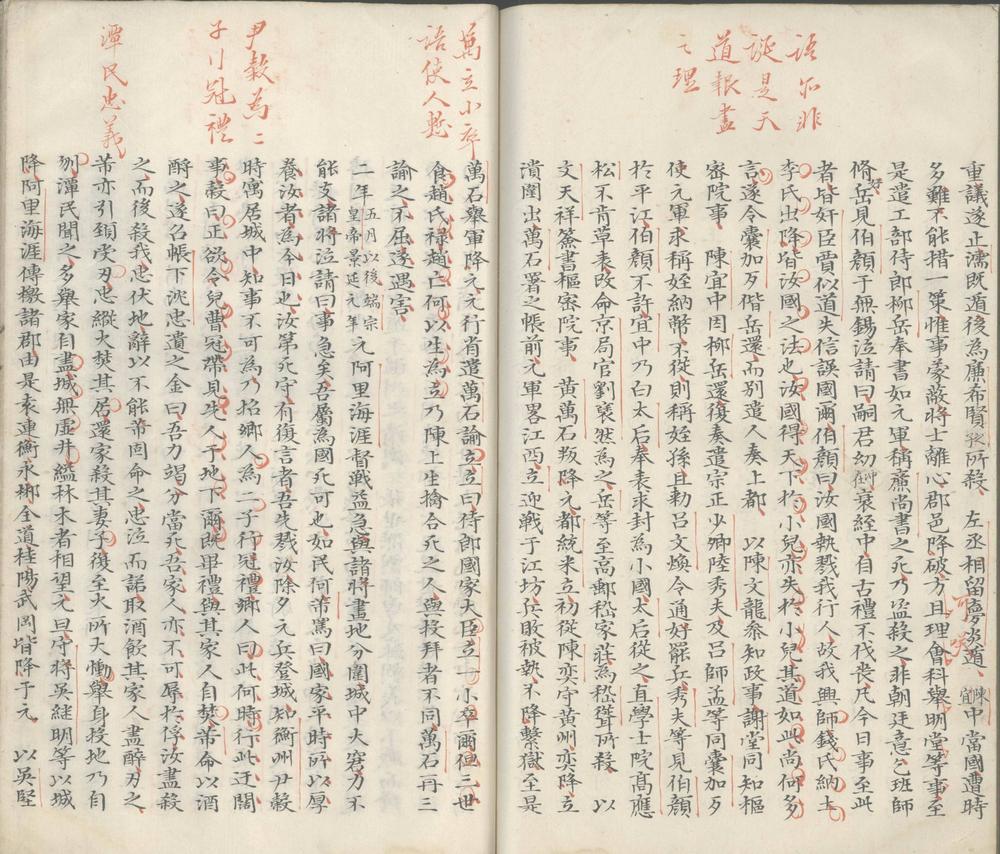 語亦非
誕是天
道報盡
之理
重議遂止濡既遁後為廉希賢從所殺 左丞相留夢炎遁 陳宜中當國遭時
多難不能措一策惟事蒙蔽將士離心郡邑降破方且理會科舉明堂等事至
是遣工部侍郎柳岳奉書如元軍稱廉尚書之死乃盜殺之非朝廷意乞班師
脩好岳見伯顏于無錫泣請曰嗣君幼冲在衰絰中自古禮不伐喪凡今日事至此
者皆奸臣賈似道失信誤國爾伯顏曰汝國執戮我行人故我興師錢氏納土
李氏出降皆汝國之法也汝國得天下於小兒亦失於小兒其道如此尚何多
言遂令囊加歹偕岳還而別遣人奏上都 以陳文龍叅知政事謝堂同知樞
密院事 陳宜中因柳岳還復奏遣宗正少卿陸秀夫及呂師孟等同囊加歹
使元軍求稱姪納幣不從則稱姪孫且勅呂文煥令通好罷兵秀夫等見伯顏
於平江伯顏不許宜中乃白太后奉表求封為小國太后從之直學士院高應
松不肯草表改命京局官劉褒然為之岳等至高郵嵇家莊為嵇聳所殺 以
文天祥簽書樞密院事 黃萬石叛降元都統米立初從陳奕守黃州奕降立
潰圍出萬石署之帳前元軍畧江西立迎戰于江坊兵敗被執不降繫獄至是
萬立小卒
語使人愁
尹穀為二
子行冠禮
潭民忠義
萬石舉軍降元元行省遣萬石諭立立曰侍郎國家大臣立一小卒爾但三世
食趙氏祿趙亡何以生為立乃陳上生擒合死之人與投拜者不同萬石再三
諭之不屈遂遇害
二年五月以後端宗皇帝景延元年元阿里海涯督戰益急與諸將畫地分圍城中大窘力不
能支諸將泣請曰事急矣吾屬為國死可也如民何芾罵曰國家平時所以厚
養汝者為今日也汝第死守有復言者吾先戮汝除夕元兵登城知衡州尹穀
時寓居城中知事不可為乃招鄉人為二子行冠禮鄉人曰此何時行此迂闊
事穀曰正欲令兒曹冠帶見先人于地下爾既畢禮與其家人自焚芾命以酒
酹之遂召帳下沈忠遺之金曰吾力竭分當死吾家人亦不可辱於俘汝盡殺
之而後殺我忠伏地辭以不能芾固命之忠泣而諾取酒飲其家人盡醉刃之
芾亦引頸受刃忠縱火焚其居還家殺其妻子復至火所大慟舉身投地乃自
刎潭民聞之多舉家自盡城無虛井縊林木者相望元旦守將吳繼明等以城
降阿里海涯傳檄諸郡由是袁連衡永郴全道桂陽武岡皆降于元 以吳堅